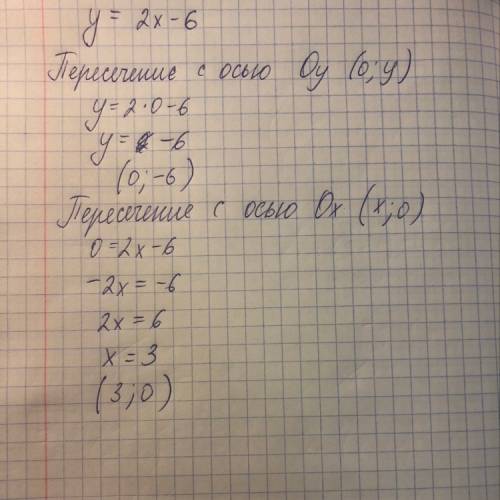 y = 2x-6
Пересечение с осью Oy (0; y)
y=2·0-6
y= -6
(0; -6)
Пересечение с осью Ox (x; 0)
0=2x-6
-2x = -6
2x = 6
x = 3
(3; 0)